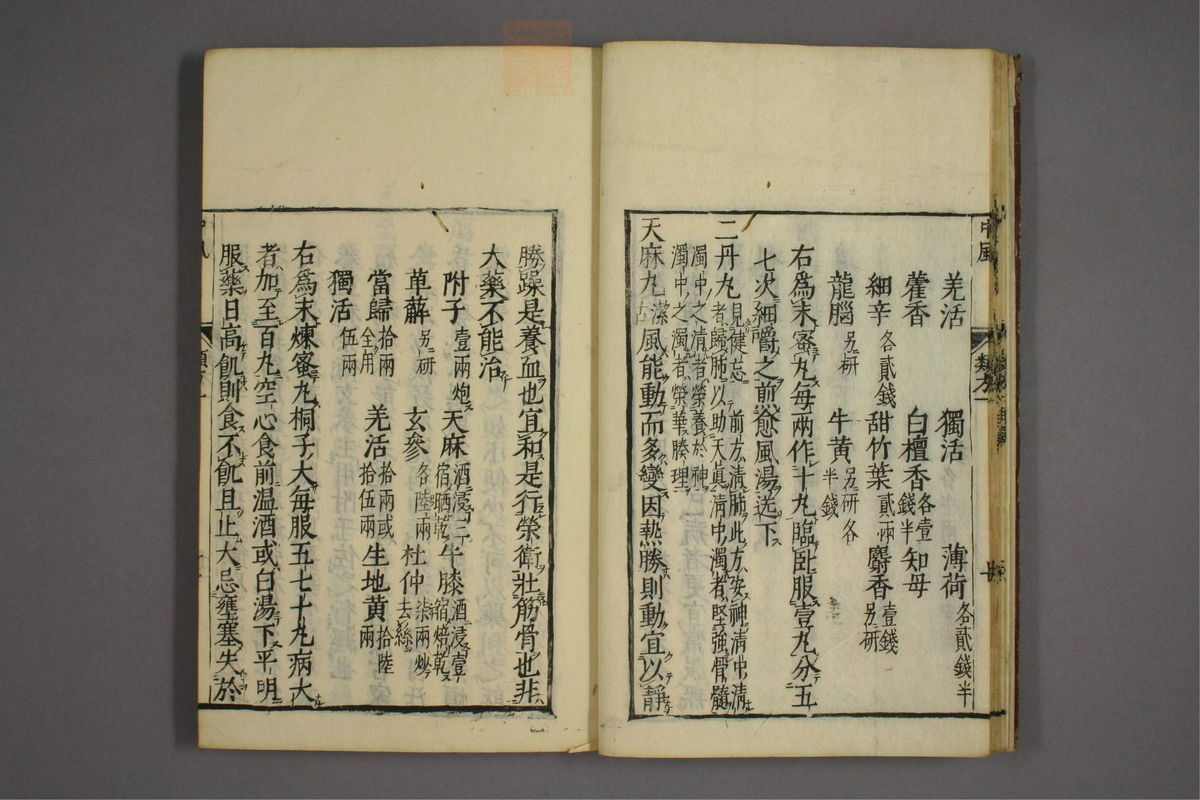 羌活 獨活 薄荷各貳錢半
藿香 白檀香各壹錢半 知母
細辛各貳錢 甜竹葉貳兩 麝香壹錢另研
龍腦另研 牛黃另研各半錢
右爲末蜜丸每兩作十丸臨臥服壹丸分五
七次細嚼之煎愈風湯送下
二丹丸見健忘 前方清肺此方安神清中清者歸肺以助天眞清中濁者堅強骨髓
濁中之清者榮養於神濁中之濁者榮華腠理
天麻丸潔古風能動而多變因熱勝則動宜以靜
勝躁是養血也宜和是行榮衛壯筋骨也非
大藥不能治
附子壹兩炮 天麻酒浸三宿晒乾 牛膝酒浸壹宿焙乾
萆薢另研 玄參各陸兩 杜仲柒兩炒去絲
當歸拾兩全用 羌活拾兩或拾伍兩 生地黃拾陸兩
獨活伍兩
右爲末煉蜜丸桐子大每服五七十丸病大
者加至百丸空心食前温酒或白湯下平明
服藥日高飢則食不飢且止大忌壅塞失於
中風
類方一